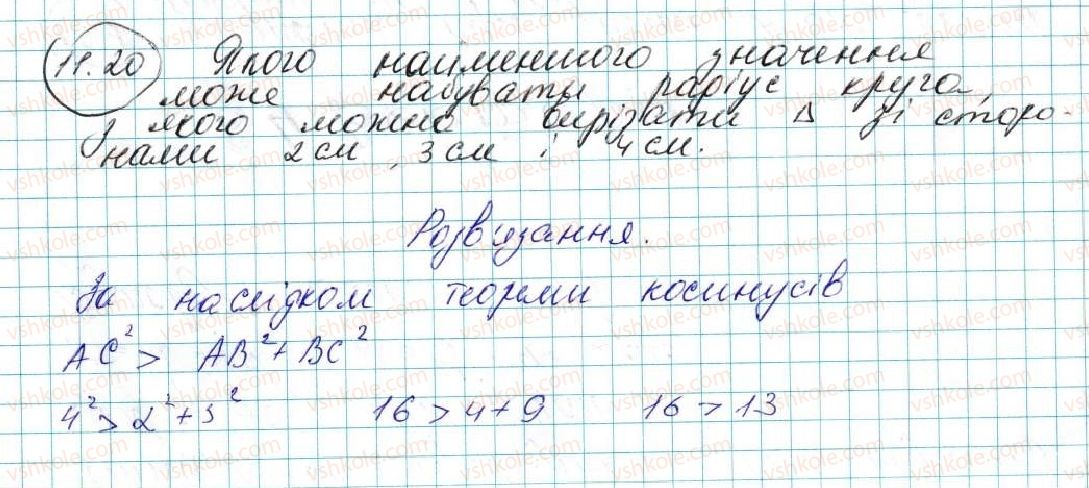 11.20 Якого найменшого значення
може набувати радіус круга,
з якого можна вирізати Δ зі сторо-
нами 2 см, 3 см і 4 см.
Розв'язання.
За наслідком теорми косинусів
AC² > AB² + BC²
4² > 2² + 3² 16 > 4 + 9 16 > 13